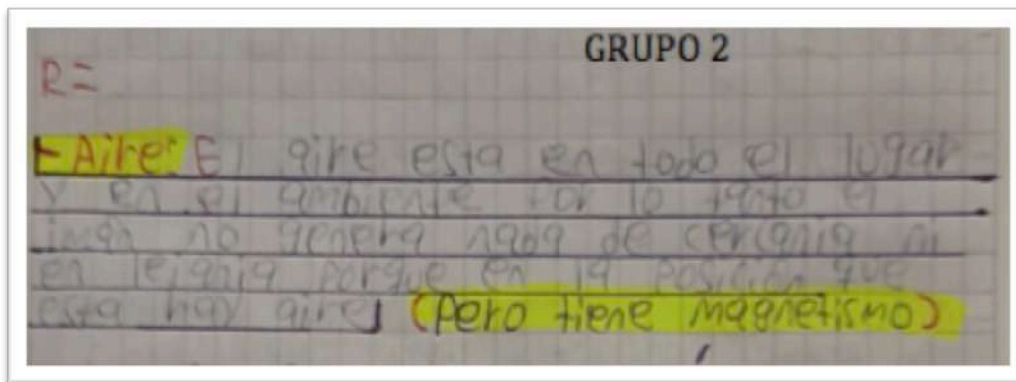 GRUPO 2
R=
- Aire: El aire esta en todo el lugar
y en el ambiente por lo tanto el
iman no genera nada de cercania ni
en lejania porque en la posición que
esta hay aire (pero tiene magnetismo)